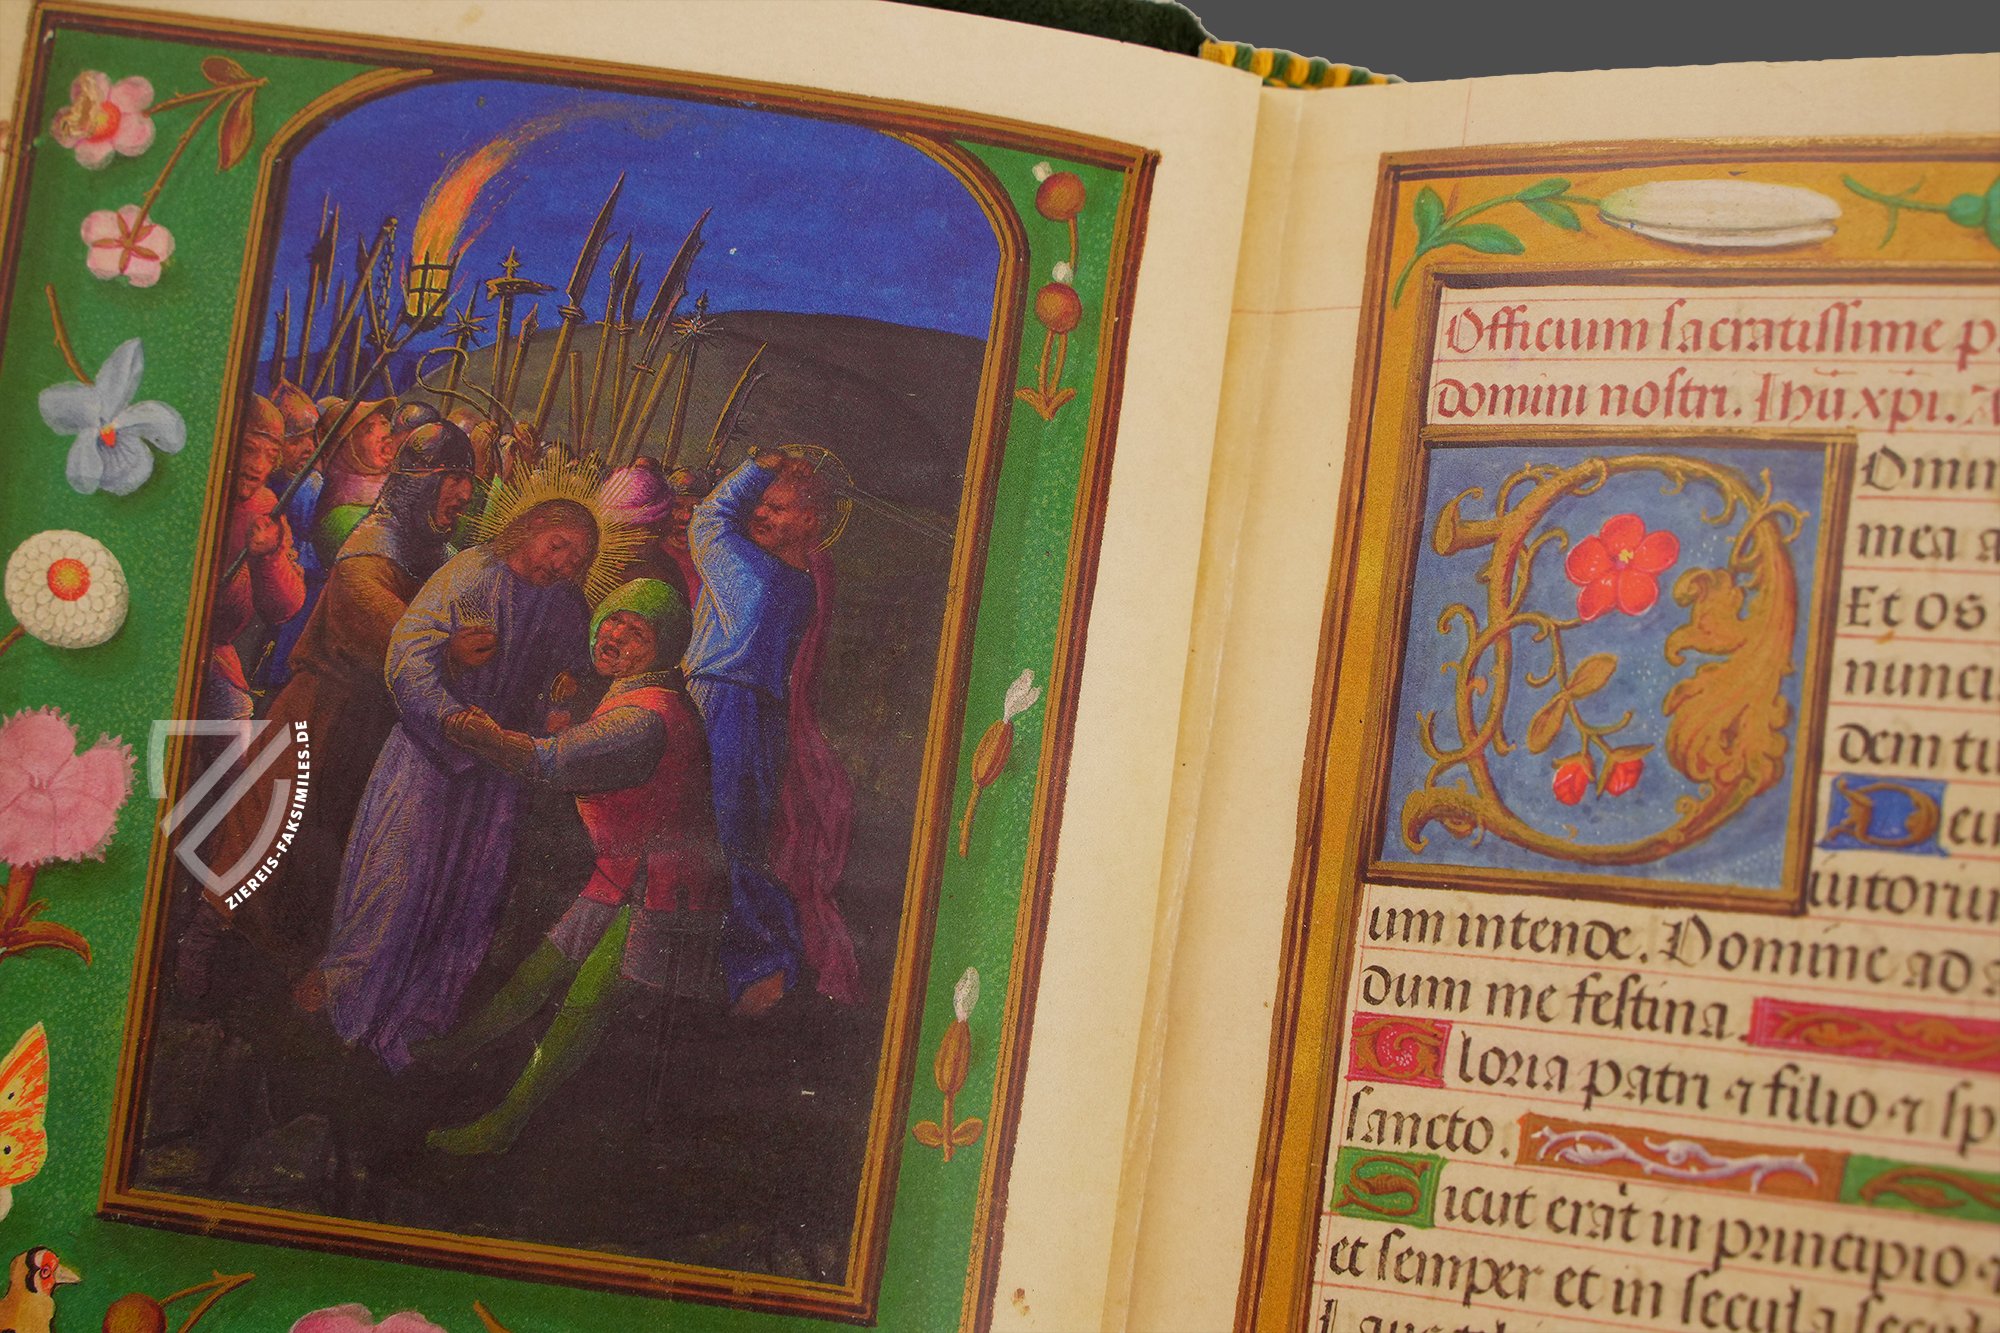 ZIEREIS-FAKSIMILES.DE
Officium sacratissime p
domini nostri. Ihu xpi.
Domin
mea a
Et os
nuncia
dem tu
Deu
iutoriu
um intende. Domine ad a
dum me festina.
Gloria patri ⁊ filio ⁊ sp
sancto.
Sicut erat in principio ⁊
et semper et in secula secul